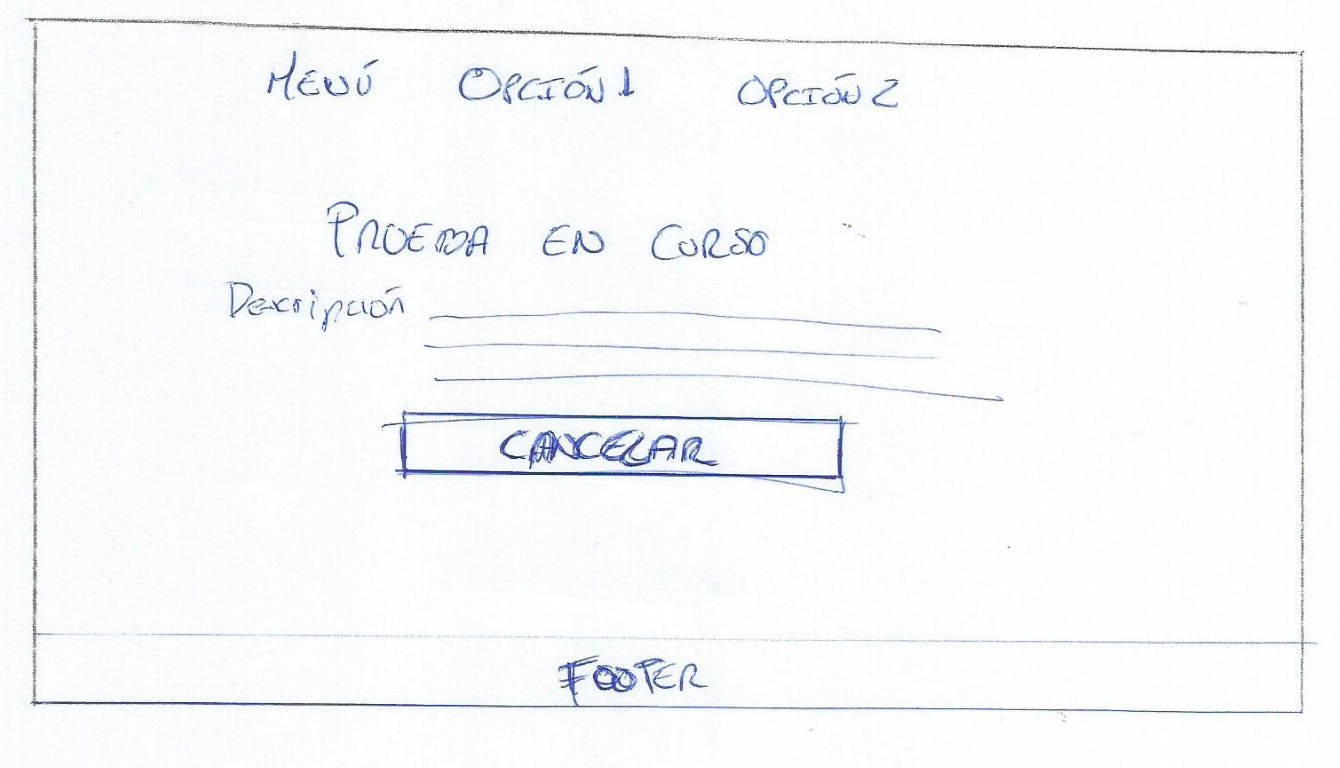 MENÚ OPCIÓN 1 OPCIÓN 2
PRUEBA EN CURSO
Descripción
CANCELAR
FOOTER